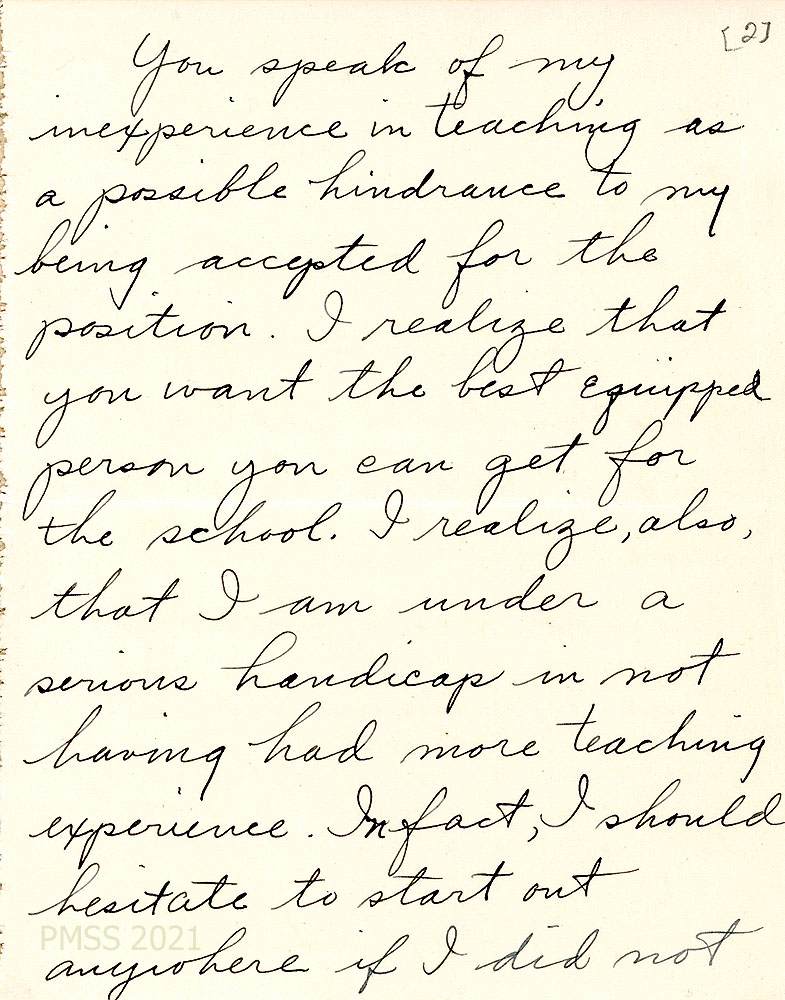 [2]
You speak of my
inexperience in teaching as
a possible hindrance to my
being accepted for the
position. I realize that
you want the best equipped
person you can get for
the school. I realize, also,
that I am under a
serious handicap in not
having had more teaching
experience. In fact, I should
hesitate to start out
PMSS 2021
anywhere if I did not